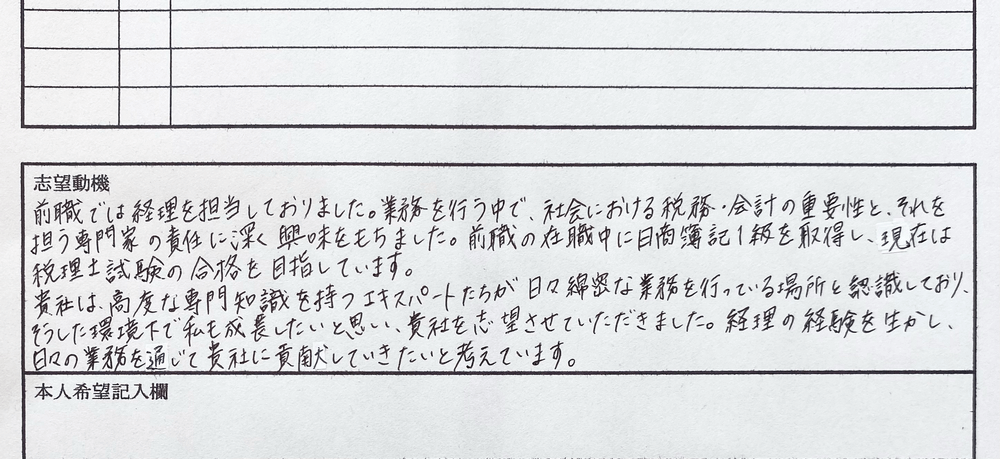 志望動機
前職では経理を担当しておりました。業務を行う中で、社会における税務・会計の重要性と、それを
担う専門家の責任に深く興味をもちました。前職の在職中に日商簿記1級を取得し、現在は
税理士試験の合格を目指しています。
貴社は、高度な専門知識を持つエキスパートたちが日々綿密な業務を行っている場所と認識しており、
そうした環境下で私も成長したいと思い、貴社を志望させていただきました。経理の経験を生かし、
日々の業務を通じて貴社に貢献していきたいと考えています。
本人希望記入欄